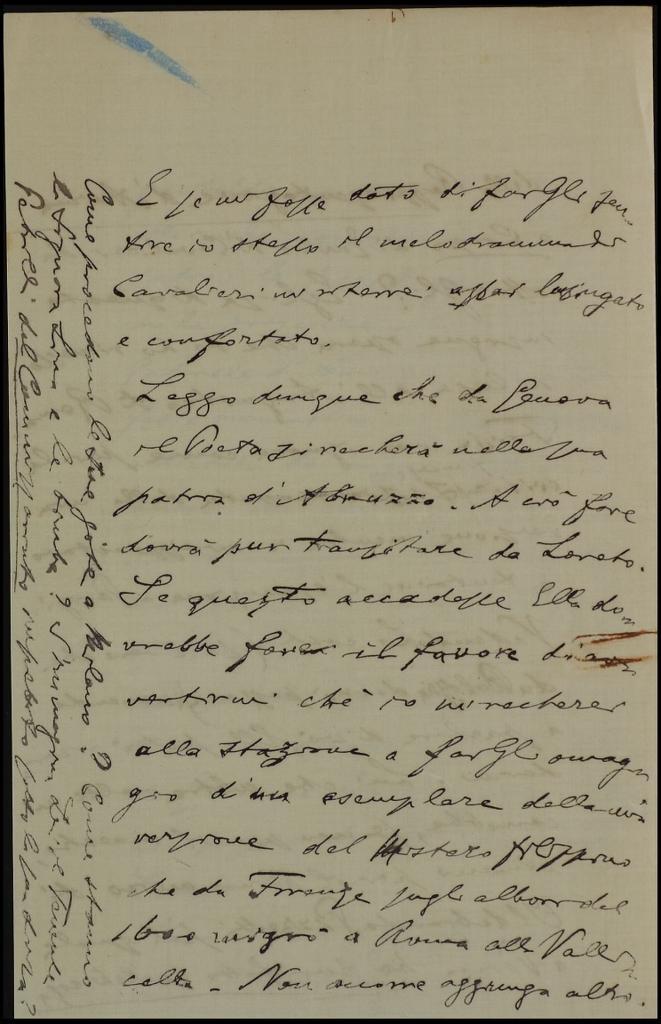 E se mi fosse dato di farGli sen-
tire io stesso il melodramma di
Cavalieri mi riterrei assai lusingato
e confortato.
Leggo dunque che da Genova
il Poeta si recherà nella sua
patria d'Abruzzo. A ciò fare
dovrà pur transitare da Loreto.
Se questo accadesse Ella do-
vrebbe farmi il favore di av-
vertirmi ché io mi recherei
alla stazione a farGli omag-
gio d'un esemplare della mia
versione del Mistero filippino
che da Firenze sugli albori del
1600 migrò a Roma alla Valli-
cella. Non occorre aggiunga altro.
Come procedono le sue gite a Milano? Come stanno
la Signora Lina e le bimbe? S'immagina Lei il Tenente
Petrilli del Comun